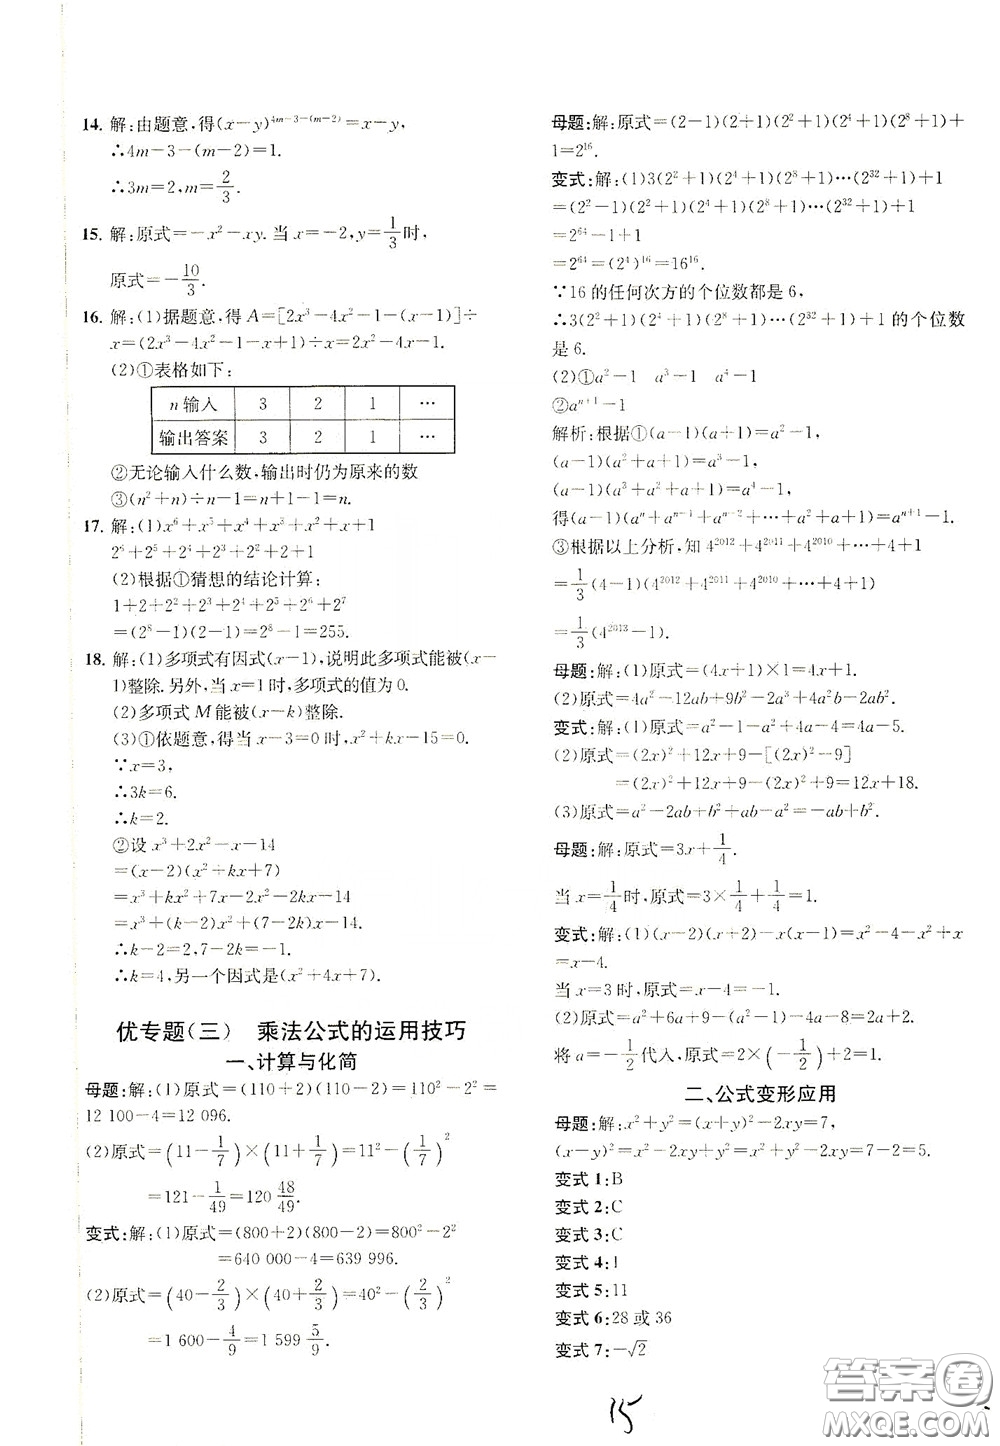 14. 解:由题意,得(x-y)^{4m-3-(m-2)}=x-y,
∴4m-3-(m-2)=1.
∴3m=2,m=2/3.
15. 解:原式=-x²-xy.当x=-2,y=1/3时,
原式=-10/3.
16. 解:(1)据题意,得A=[2x³-4x²-1-(x-1)]÷
x=(2x³-4x²-1-x+1)÷x=2x²-4x-1.
(2)①表格如下:
n输入 3 2 1 …
输出答案 3 2 1 …
②无论输入什么数,输出时仍为原来的数
③(n²+n)÷n-1=n+1-1=n.
17. 解:(1)x⁶+x⁵+x⁴+x³+x²+x+1
2⁶+2⁵+2⁴+2³+2²+2+1
(2)根据①猜想的结论计算:
1+2+2²+2³+2⁴+2⁵+2⁶+2⁷
=(2⁸-1)(2-1)=2⁸-1=255.
18. 解:(1)多项式有因式(x-1),说明此多项式能被(x-
1)整除.另外,当x=1时,多项式的值为0.
(2)多项式M能被(x-k)整除.
(3)①依题意,得当x-3=0时,x²+kx-15=0.
∵x=3,
∴3k=6.
∴k=2.
②设x³+2x²-x-14
=(x-2)(x²+kx+7)
=x³+kx²+7x-2x²-2kx-14
=x³+(k-2)x²+(7-2k)x-14.
∴k-2=2,7-2k=-1.
∴k=4,另一个因式是(x²+4x+7).
优专题(三) 乘法公式的运用技巧
一、计算与化简
母题:解:(1)原式=(110+2)(110-2)=110²-2²=
12 100-4=12 096.
(2)原式=(11-1/7)×(11+1/7)=11²-(1/7)²
=121-1/49=120 48/49.
变式:解:(1)原式=(800+2)(800-2)=800²-2²
=640 000-4=639 996.
(2)原式=(40-2/3)×(40+2/3)=40²-(2/3)²
=1 600-4/9=1 599 5/9.
母题:解:原式=(2-1)(2+1)(2²+1)(2⁴+1)(2⁸+1)+
1=2¹⁶.
变式:解:(1)3(2²+1)(2⁴+1)(2⁸+1)…(2³²+1)+1
=(2²-1)(2²+1)(2⁴+1)(2⁸+1)…(2³²+1)+1
=2⁶⁴-1+1
=2⁶⁴=(2⁴)¹⁶=16¹⁶.
∵16的任何次方的个位数都是6,
∴3(2²+1)(2⁴+1)(2⁸+1)…(2³²+1)+1的个位数
是6.
(2)①a²-1 a³-1 a⁴-1
②aⁿ⁺¹-1
解析:根据①(a-1)(a+1)=a²-1,
(a-1)(a²+a+1)=a³-1,
(a-1)(a³+a²+a+1)=a⁴-1,
得(a-1)(aⁿ+aⁿ⁻¹+aⁿ⁻²+…+a²+a+1)=aⁿ⁺¹-1.
③根据以上分析,知4²⁰¹²+4²⁰¹¹+4²⁰¹⁰+…+4+1
=1/3(4-1)(4²⁰¹²+4²⁰¹¹+4²⁰¹⁰+…+4+1)
=1/3(4²⁰¹³-1).
母题:解:(1)原式=(4x+1)×1=4x+1.
(2)原式=4a²-12ab+9b²-2a³+4a²b-2ab².
变式:解:(1)原式=a²-1-a²+4a-4=4a-5.
(2)原式=(2x)²+12x+9-[(2x)²-9]
=(2x)²+12x+9-(2x)²+9=12x+18.
(3)原式=a²-2ab+b²+ab-a²=-ab+b².
母题:解:原式=3x+1/4.
当x=1/4时,原式=3×1/4+1/4=1.
变式:解:(1)(x-2)(x+2)-x(x-1)=x²-4-x²+x
=x-4.
当x=3时,原式=x-4=-1.
(2)原式=a²+6a+9-(a²-1)-4a-8=2a+2.
将a=-1/2代入,原式=2×(-1/2)+2=1.
二、公式变形应用
母题:解:x²+y²=(x+y)²-2xy=7,
(x-y)²=x²-2xy+y²=x²+y²-2xy=7-2=5.
变式1:B
变式2:C
变式3:C
变式4:1
变式5:11
变式6:28或36
变式7:-√2
15
答案圈
MXQE.COM